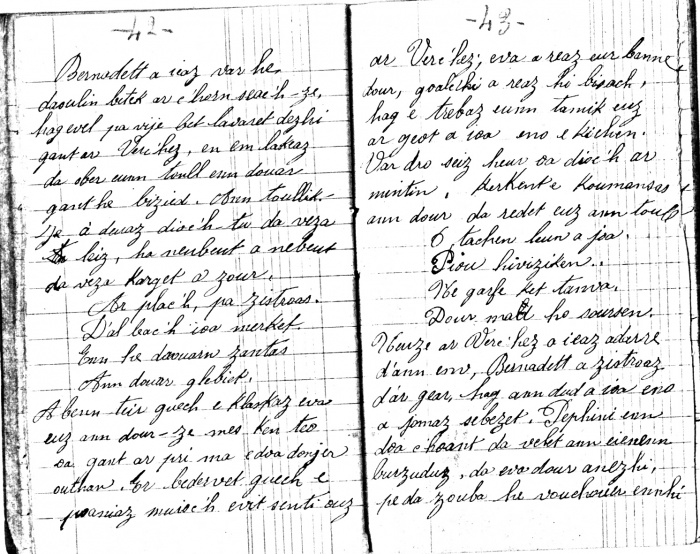 -42-
Bernadett a ieaz var he
daoulin betek ar c'horn seac'h-ze,
hag evel pa vije bet lavaret dezhi
gant ar Verc'hez, en em lakeaz
da ober eunn toull enn douar
gant he bizied. Ann toullik-
ze a deuaz dioc'h-tu da veza
leiz, ha neubeut a nebeut
da veza karget a zour.
Ar plac'h, pa zistroas.
D'al leac'h ioa merket
Enn he daouarn zantas
Ann douar glebiet.
A benn teir guech e klaskaz eva
euz ann dour-ze mes ken teo
oa gant ar pri ma edoa donjer
outhan. Ar bedervet guech e
poaniaz muioc'h evit senti ouz
-43-
ar Verc'hez; eva a reaz eur banne
dour, goalc'hi a reaz hi bisach,
hag e trebaz eunn tamik euz
ar geot a ioa eno e kichen.
Var dro seiz heur oa dioc'h ar
mintin. Kerkent e koumansas
ann dour da redet euz ann toull
O tachen leun a joa.
Piou hiviziken.
Ne garfe ket tanva.
Dour mad ho soursen.
Neuze ar Verc'hez a ieaz aderre
d'ann env, Bernadett a zistroaz
d'ar gear, hag ann dud a ioa eno
a jomaz sebezet. Pephini enn
doa c'hoant da velet ann eienenn
burzuduz, da eva dour anezhi,
pe da zouba he vouchouer ennhi